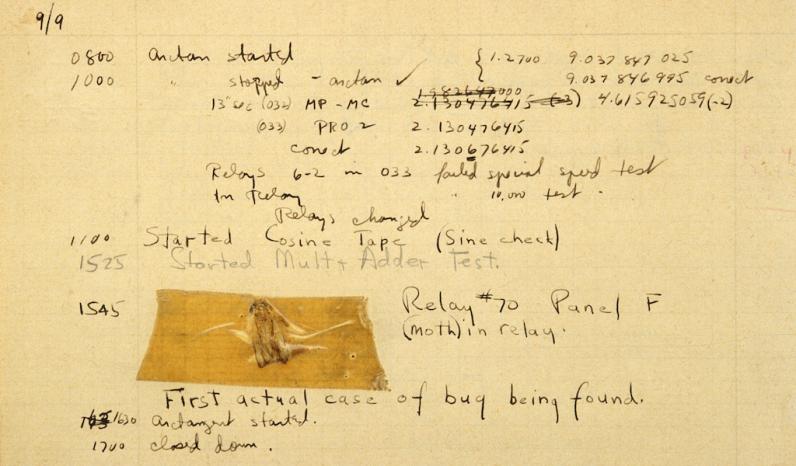 9/9
0800 Antan started { 1.2700 9.037 847 025
1000 " stopped - antan ✓ 9.037 846 995 conect
13"uc (032) MP - MC 2.130476415 (-3) 4.615925059(-2)
(033) PRO 2 2.130476415
conect 2.130676415
Relays 6-2 in 033 failed special speed test
In Relay " 10,000 test .
Relays changed
1100 Started Cosine Tape (Sine check)
1525 Started Mult + Adder Test.
1545 Relay #70 Panel F
(moth) in relay.
First actual case of bug being found.
1630 antangent started.
1700 closed down.